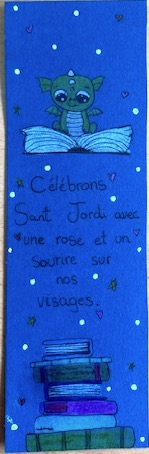 Célébrons
Sant Jordi avec
une rose et un
sourire sur
nos
visages.